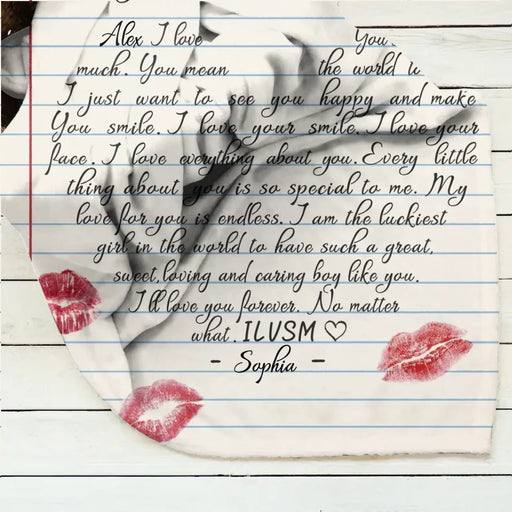 Alex I love You.
much. You mean the world
I just want to see you happy and make
You smile. I love your smile. I love your
face. I love everything about you. Every little
thing about you is so special to me. My
love for you is endless. I am the luckiest
girl in the world to have such a great,
sweet, loving and caring boy like you.
I'll love you forever. No matter
what. ILVSM ♡
- Sophia -